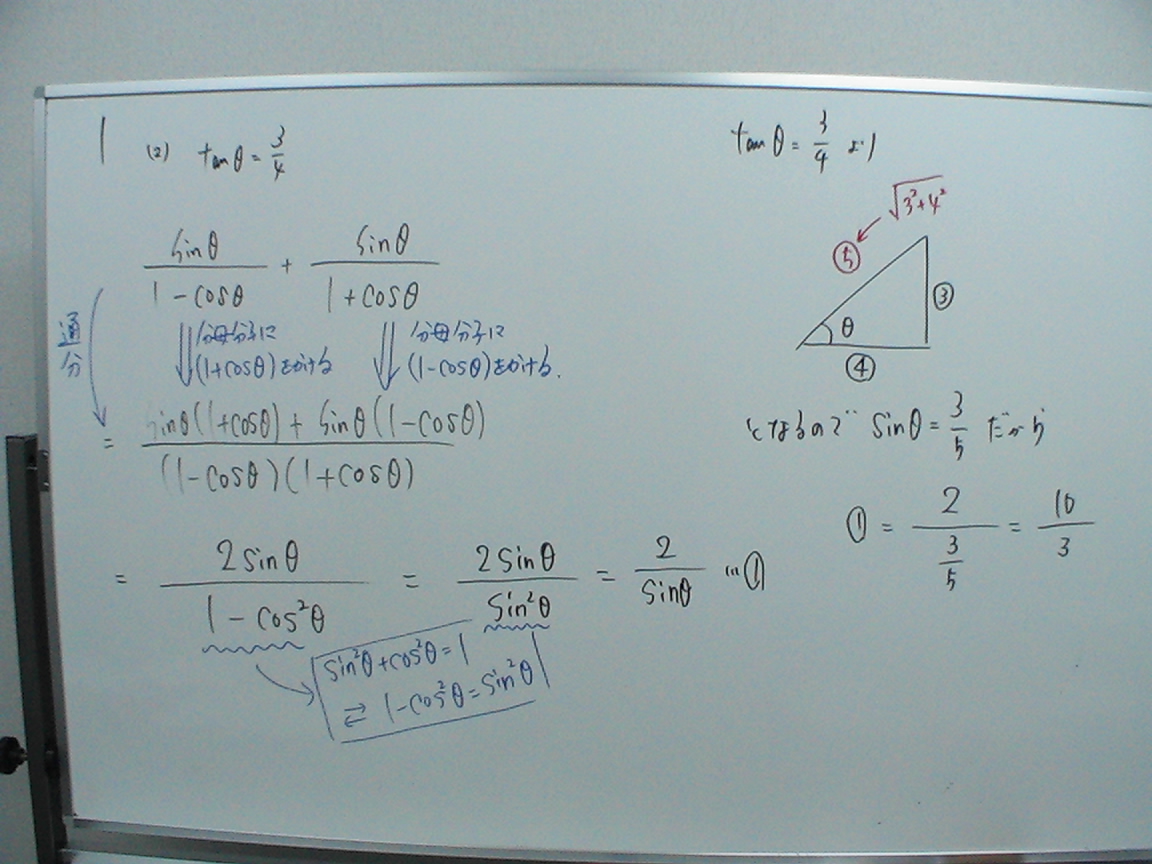 1 (2) tanθ = 3/4
sinθ/(1-cosθ) + sinθ/(1+cosθ)
通分
分母分子に
(1+cosθ)をかける
分母分子に
(1-cosθ)をかける.
= (sinθ(1+cosθ) + sinθ(1-cosθ))/((1-cosθ)(1+cosθ))
= 2sinθ/(1-cos²θ) = 2sinθ/sin²θ = 2/sinθ …①
sin²θ+cos²θ=1
⇄ 1-cos²θ=sin²θ
tanθ = 3/4 より
√(3²+4²)
⑤
③
θ
④
となるので sinθ = 3/5 だから
① = 2/(3/5) = 10/3